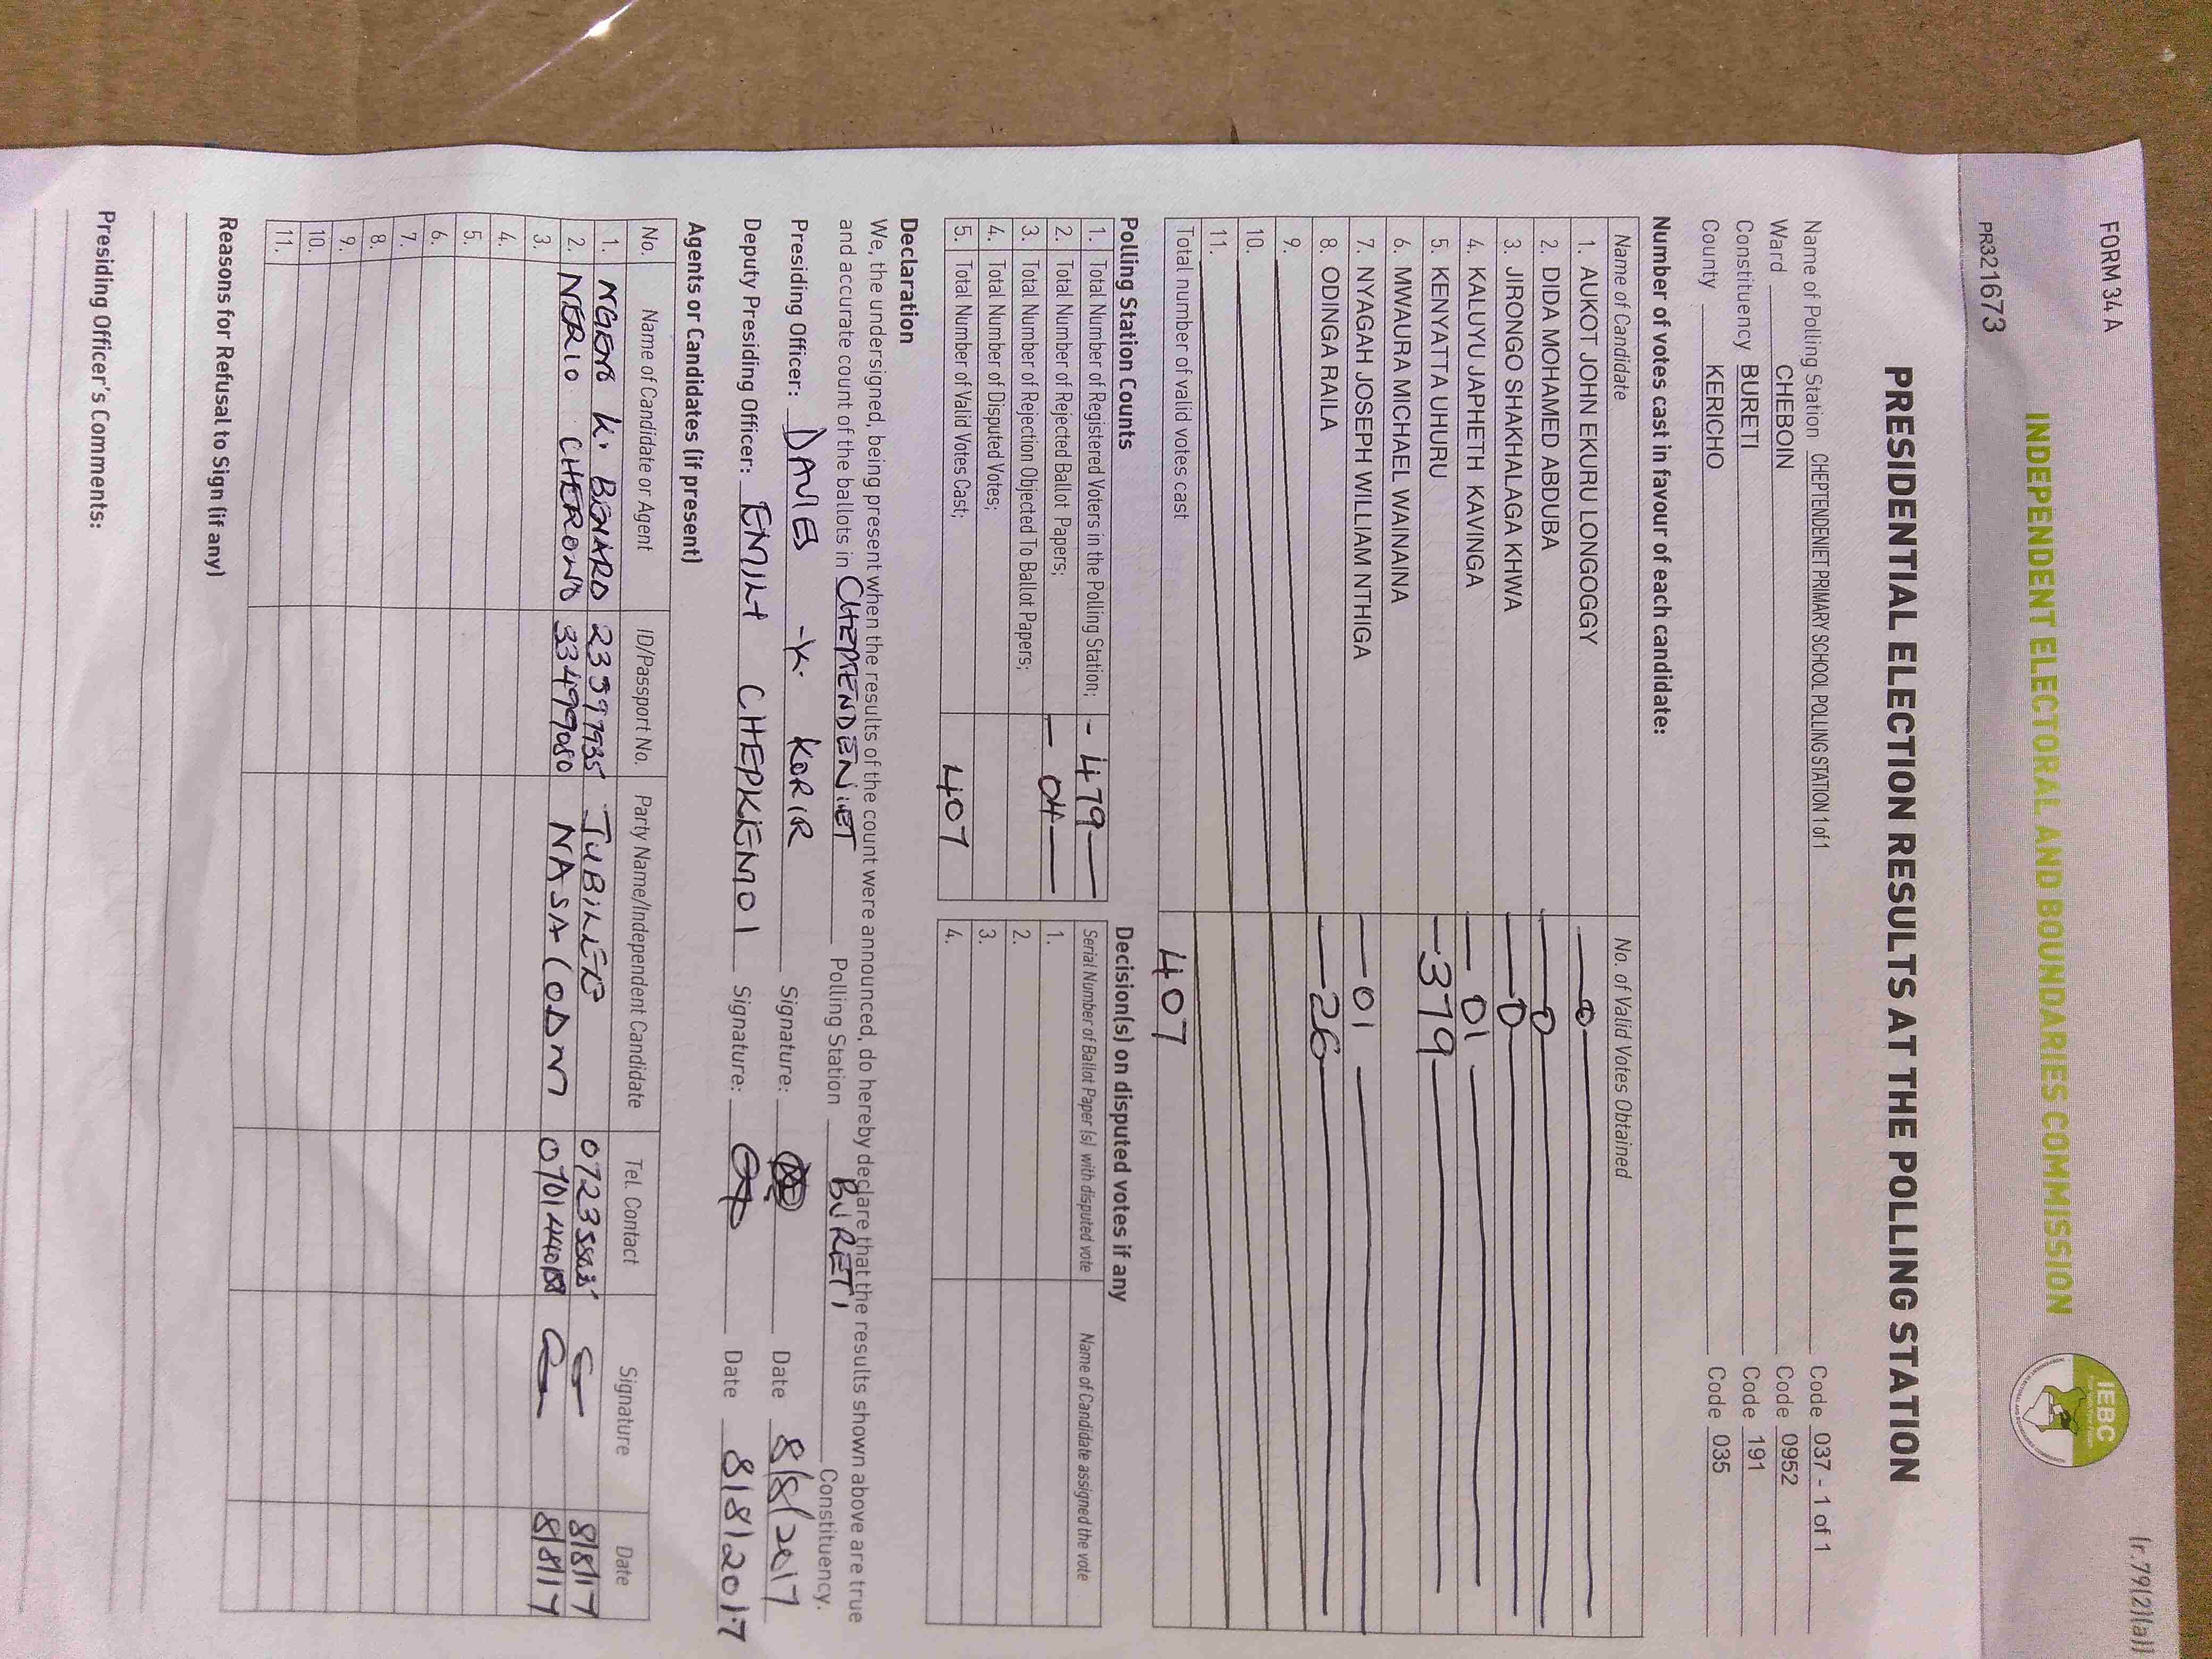 FORM 34 A
(r.79(2)(a))
INDEPENDENT ELECTORAL AND BOUNDARIES COMMISSION
IEBC
PR321673
PRESIDENTIAL ELECTION RESULTS AT THE POLLING STATION
Name of Polling Station CHEPTENDENIET PRIMARY SCHOOL POLLING STATION 1 of 1 Code 037 - 1 of 1
Ward CHEBOIN Code 0952
Constituency BURETI Code 191
County KERICHO Code 035
Number of votes cast in favour of each candidate:
Name of Candidate No. of Valid Votes Obtained
1. AUKOT JOHN EKURU LONGOGGY 0
2. DIDA MOHAMED ABDUBA 0
3. JIRONGO SHAKHALAGA KHWA 0
4. KALUYU JAPHETH KAVINGA 01
5. KENYATTA UHURU 379
6. MWAURA MICHAEL WAINAINA
7. NYAGAH JOSEPH WILLIAM NTHIGA 01
8. ODINGA RAILA 26
9.
10.
11.
Total number of valid votes cast 407
Polling Station Counts
1. Total Number of Registered Voters in the Polling Station; - 479 -
2. Total Number of Rejected Ballot Papers; - 04 -
3. Total Number of Rejection Objected To Ballot Papers;
4. Total Number of Disputed Votes;
5. Total Number of Valid Votes Cast; 407
Decision(s) on disputed votes if any
Serial Number of Ballot Paper (s) with disputed vote Name of Candidate assigned the vote
1.
2.
3.
4.
Declaration
We, the undersigned, being present when the results of the count were announced, do hereby declare that the results shown above are true
and accurate count of the ballots in CHEPTENDENIET Polling Station BURETI Constituency.
Presiding Officer: DAVIES K. KORIR Signature: Date 8/8/2017
Deputy Presiding Officer: EMILY CHEPKEMOI Signature: Date 8/8/2017
Agents or Candidates (if present)
No. Name of Candidate or Agent ID/Passport No. Party Name/Independent Candidate Tel. Contact Signature Date
1. NGENO K. BENARD 23397935 JUBILEE 8/8/17
2. NERIO CHERONO 33499080 NASA (ODM 8/8/17
3.
4.
5.
6.
7.
8.
9.
10.
11.
Reasons for Refusal to Sign (if any)
Presiding Officer's Comments: